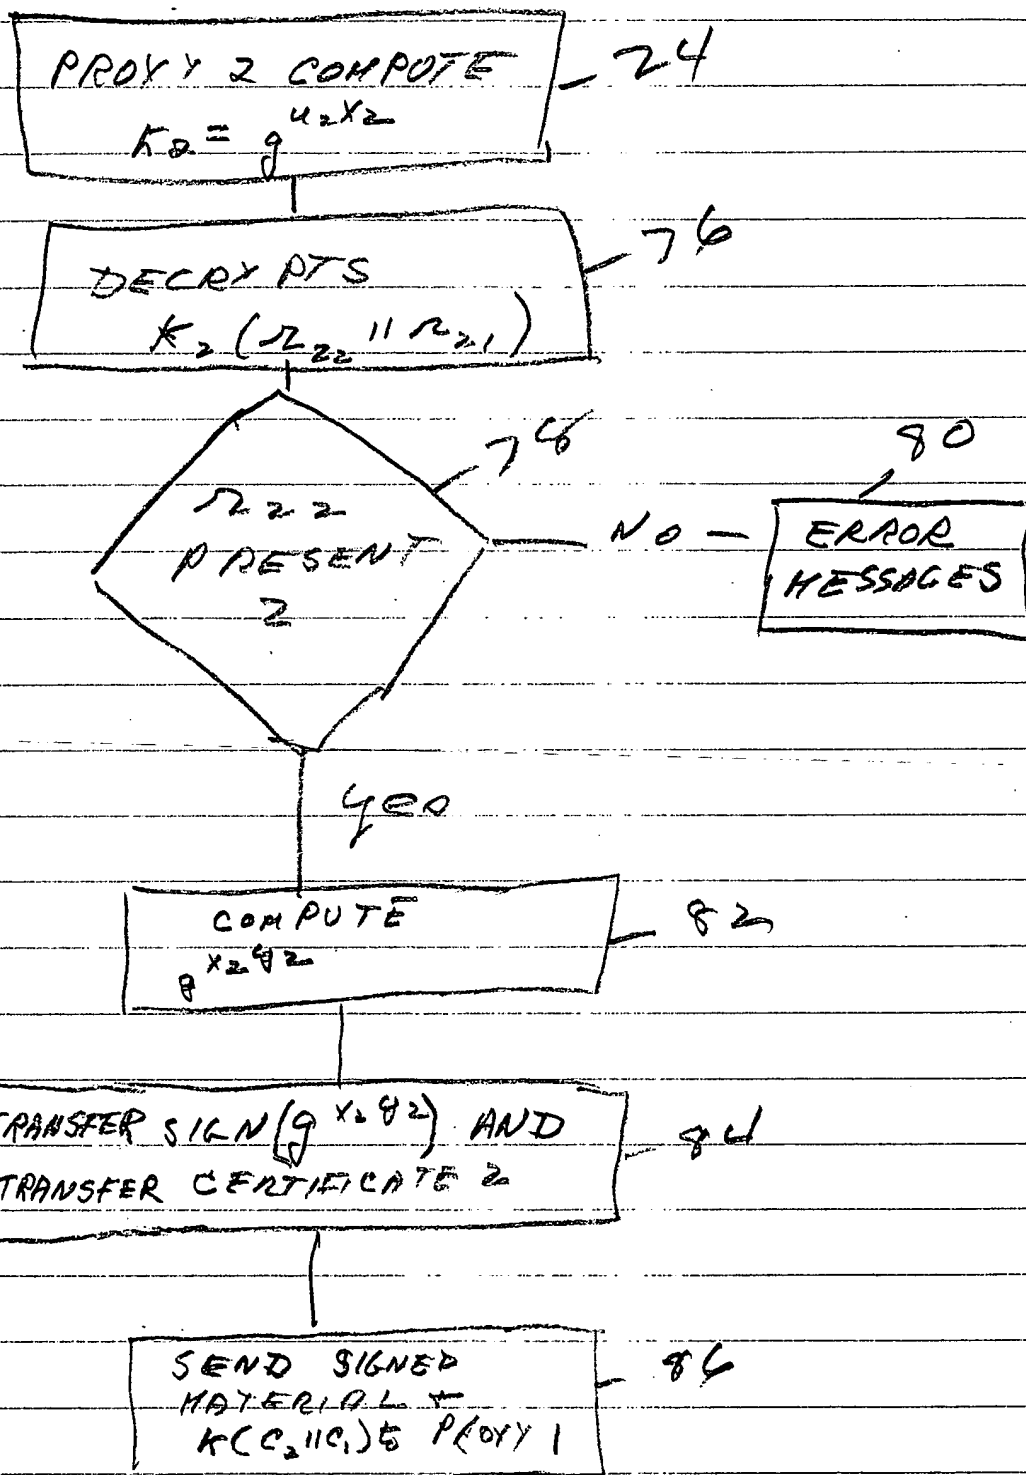 PROXY 2 COMPUTE — 24
K2 = g^u2x2
76
DECRYPTS
K2 (r22 || r21)
78
80
r22
PRESENT
?
NO — ERROR
MESSAGES
yes
COMPUTE
82
g^x2y2
TRANSFER SIGN(g^x2y2) AND
84
TRANSFER CERTIFICATE 2
SEND SIGNED
86
MATERIAL +
K(C2||C1) to PROXY 1